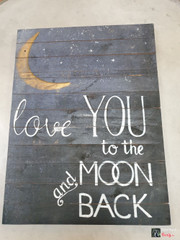 love YOU
to the
and MOON
BACK